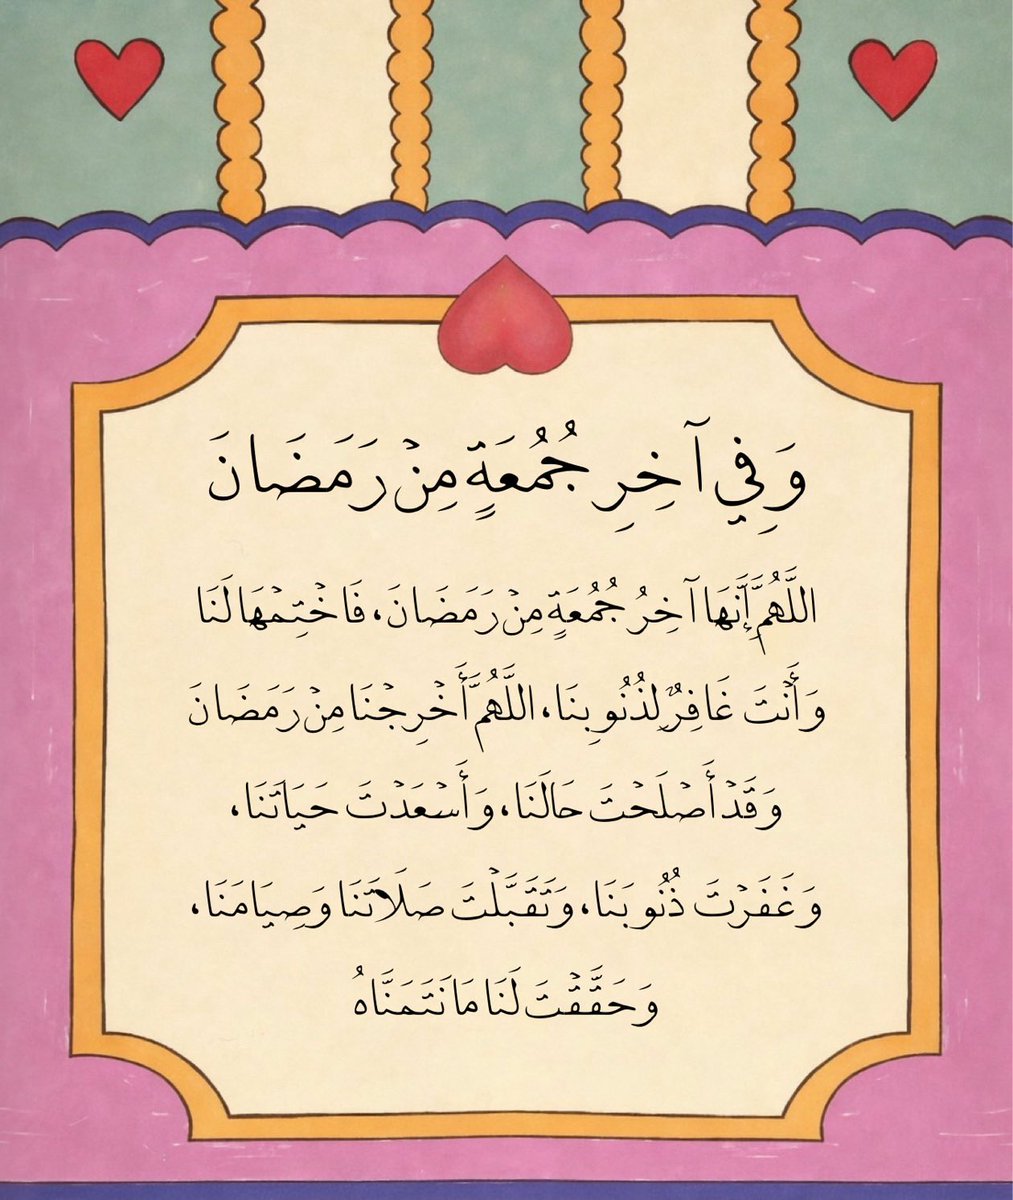 وَفِي آخِرِ جُمُعَةٍ مِنْ رَمَضَانَ
اللَّهُمَّ إِنَّهَا آخِرُ جُمُعَةٍ مِنْ رَمَضَانَ، فَاخْتِمْهَا لَنَا
وَأَنْتَ غَافِرٌ لِذُنُوبِنَا، اللَّهُمَّ أَخْرِجْنَا مِنْ رَمَضَانَ
وَقَدْ أَصْلَحْتَ حَالَنَا، وَأَسْعَدْتَ حَيَاتَنَا،
وَغَفَرْتَ ذُنُوبَنَا، وَتَقَبَّلْتَ صَلَاتَنَا وَصِيَامَنَا،
وَحَقَّقْتَ لَنَا مَا نَتَمَنَّاهُ